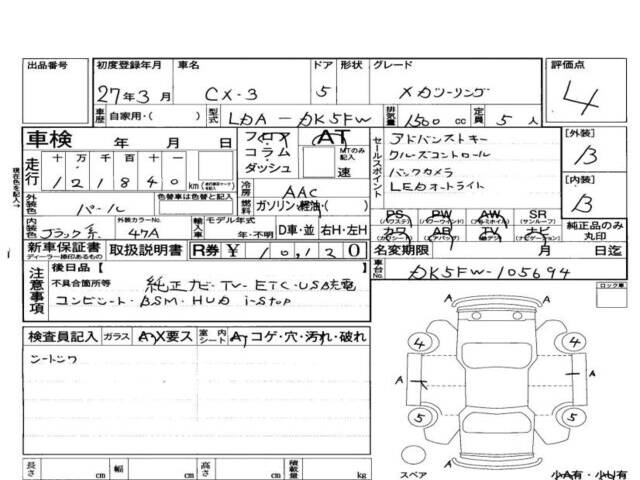 出品番号 初度登録年月 車名 ドア 形状 グレード 評価点
27年3月 CX-3 5 XDツーリング 4
車歴 自家用・( ) 型式 LDA-DK5FW 排気量 1500 cc 定員 5 人
車検 年 月 日 フロア コラム ダッシュ AT MTのみ記入 速
現在色を記入→
走行 十 万 千 百 十 一 km
1 2 1 8 4 0
冷房 AAC
燃料 ガソリン・軽油・( )
外装色 パール 色替車は色替と記入
内装色 ブラック系 外装カラーNo. 47A 輸入車 モデル年式 年・不明 D車・並 右H・左H
セールスポイント
アドバンストキー
クルーズコントロール
バックカメラ
LEDオートライト
PS PW AW SR
(パワステ) (パワーウインド) (アルミホイル) (サンルーフ)
カワ AB TV ナビ
(カワシート) (エアバッグ) (ナビゲーション)
純正品のみ丸印
[外装] B
[内装] B
新車保証書 取扱説明書 R券 ¥10,120
ディーラー捺印あるもの
名変期限 月 日迄
車台No. DK5FW-105694
注意事項
後日品 [
不具合箇所等 純正ナビ・TV・ETC・USB充電
コンビシート・BSM・HUD i-stop
ロック車
検査員記入 ガラス A・X要ス 室内シート A・コゲ・穴・汚れ・破れ
シートシワ
4 4
A A
5 5
A
スペア
長さ cm 幅 cm 高さ cm 積載量 kg
小A有・小U有